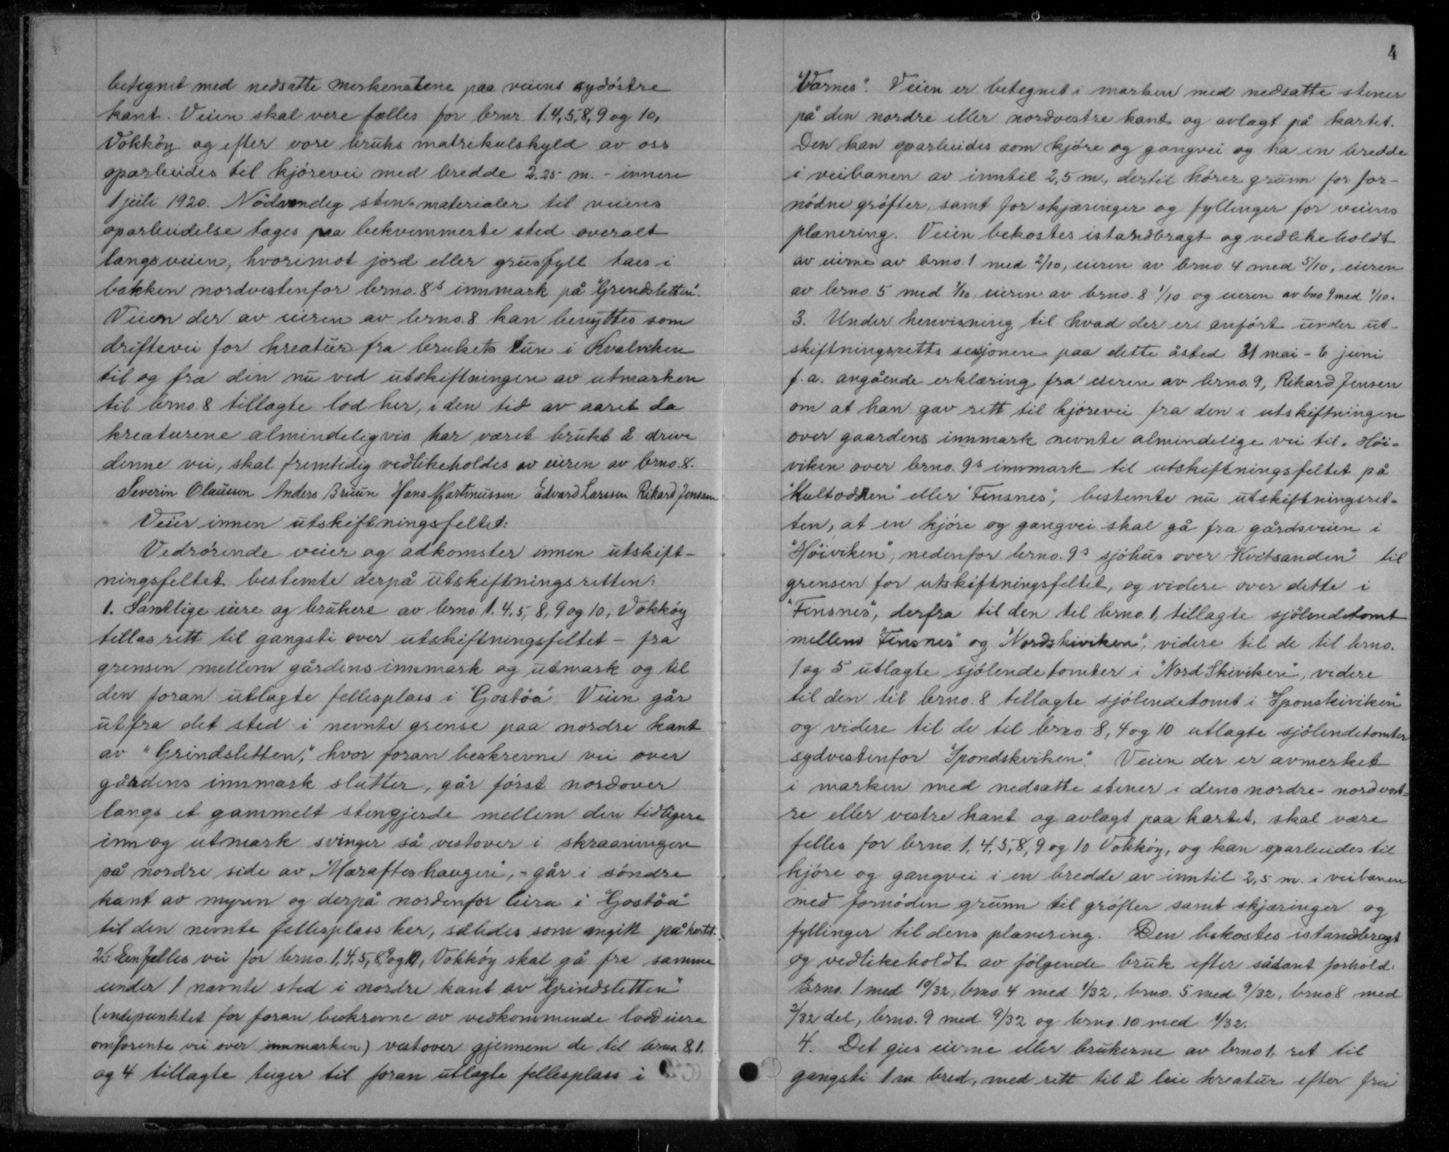 betegnet med nedsatte merkestene paa veiens sydöstre
kant. Veien skal vere felles for brnr. 1.4,5,8,9 og 10,
Vokköy og efter vore bruks matrikulskyld av oss
oparbeides til kjörevei med bredde 2.25 m. - innen
1 juli 1920. Nödvendig sten-materialer til veiens
oparbeidelse tages paa bekvemmeste sted overalt
langs veien, hvorimot jord eller grusfyll taes i
bakken nordvestenfor brno. 8s innmark på "Grendsletten".
Veien der av eieren av brno. 8 kan benyttes som
driftevei for kreatur fra brukets tun i Kvalviken
til og fra den nu ved utskiftningen av utmarken
til brno. 8 tillagte lod her, i den tid av aaret da
kreaturene almindeligvis har været brukt å drive
denne vei, skal fremtidig vedlikeholdes av eieren av brno. 8.
Severin Olaussen Anders Bruun Hans Martinussen Edvard Larssen Rikard Jensen
Veier innen utskiftningsfeltet:
Vedrörende veier og adkomster innen utskift-
ningsfeltet bestemte derpå utskiftningsretten:
1. Samtlige eiere og brukere av brno 1.4.5, 8, 9 og 10, Vokköy
tillas rett til gangsti over utskiftningsfeltet - fra
grensen mellem gårdens innmark og utmark og til
den foran utlagte fellesplass i "Gostöa". Veien går
ut fra det sted i nevnte grense paa nordre kant
av "Grindsletten," hvor foran beskrevne vei over
gårdens innmark slutter, går först nordover
langs et gammelt stengjerde mellem den tidligere
inn og utmark svinger så vestover i skraaningen
på nordre side av "Mærafteshaugen", - går i söndre
kant av myren og derpå nordenfor leira i "Gostöa"
til den nevnte fellesplass her, således som angitt på kartet.
2. Een felles vei for brno. 1.4,5,8,9 og 10, Vokköy skal gå fra samme
under 1 nævnte sted i nordre kant av "Grindsletten"
(endepunktet for foran beskrevne av vedkommende lodd eiere
omforente vei over innmarken) vestover gjennem de til brno. 8.1.
og 4 tillagte teiger til foran utlagte fellesplass i
4
"Varnes". Veien er betegnet i marken med nedsatte stener
på den nordre eller nordvestre kant og avlagt på kartet.
Den kan oparbeides som kjöre og gangvei og ha en bredde
i veibanen av inntil 2,5 m., dertil hörer grunn for for-
nödne gröfter, samt for skjæringer og fyllinger for veiens
planering. Veien bekostes istandbragt og vedlikeholdt
av eierne av brno. 1 med 2/10, eieren av brno. 4 med 5/10, eieren
av brno. 5 med 1/10 eieren av brno. 8 1/10 og eieren av bno 9 med 1/10.
3. Under henvisning til hvad der er anfört under ut-
skiftningsretts sesjonen paa dette åsted 31 mai - 6 juni
f.a. angående erklæring fra eieren av brno. 9, Rikard Jensen
om at han gav rett til kjörevei fra den i utskiftningen
over gaardens innmark nevnte almindelige vei til "Höi-
viken over brno. 9s innmark til utskiftningsfeltet på
"Kultodden" eller "Finsnes", bestemte nu utskiftningsret-
ten, at en kjöre og gangvei skal gå fra gårdsveien i
"Höiviken", nedenfor brno. 9s sjöhus over "Kvitsanden" til
grensen for utskiftningsfeltet, og videre over dette i
"Finsnes", derfra til den til brno. 1, tillagte sjölendetomt
mellem "Finsnes" og "Nordskiviken", videre til de til brno.
1 og 5 utlagte sjölendetomter i "Nord Skiviken", videre
til den til brno. 8 tillagte sjölendetomt i "Sponskiviken"
og videre til de til brno 8, 4 og 10 utlagte sjölendetomter
sydvestenfor "Spondskviken". Veien der er avmerket
i marken med nedsatte stener i dens nordre - nordvest-
re eller vestre kant og avlagt paa kartet, skal være
felles for brno. 1, 4, 5, 8, 9 og 10 Vokköy, og kan oparbeides til
kjöre og gangvei i en bredde av inntil 2,5 m. i veibanen
med fornöden grunn til gröfter samt skjæringer og
fyllinger til dens planering. Den bekostes istandbragt
og vedlikeholdt av fölgende bruk efter sådant forhold:
Brno. 1 med 10/32, brno. 4 med 1/32, brno. 5 med 9/32, brno 8 med
2/32 del, brno. 9 med 9/32 og brno. 10 med 1/32.
4. Det gies eierne eller brukerne av brno 1, ret til
gangsti 1 m bred, med rett til å leie kreatur efter fra